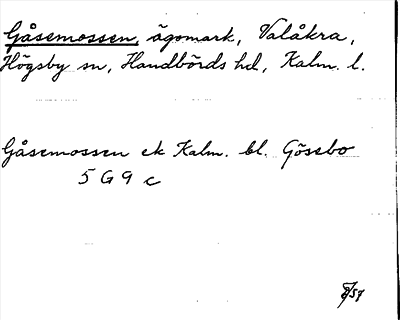 Gåsemossen, ägomark, Valåkra,
Högsby sn, Handbörds hd, Kalm. l.
Gåsemossen ek Kalm. bl. Gösebo
5 G 9 c